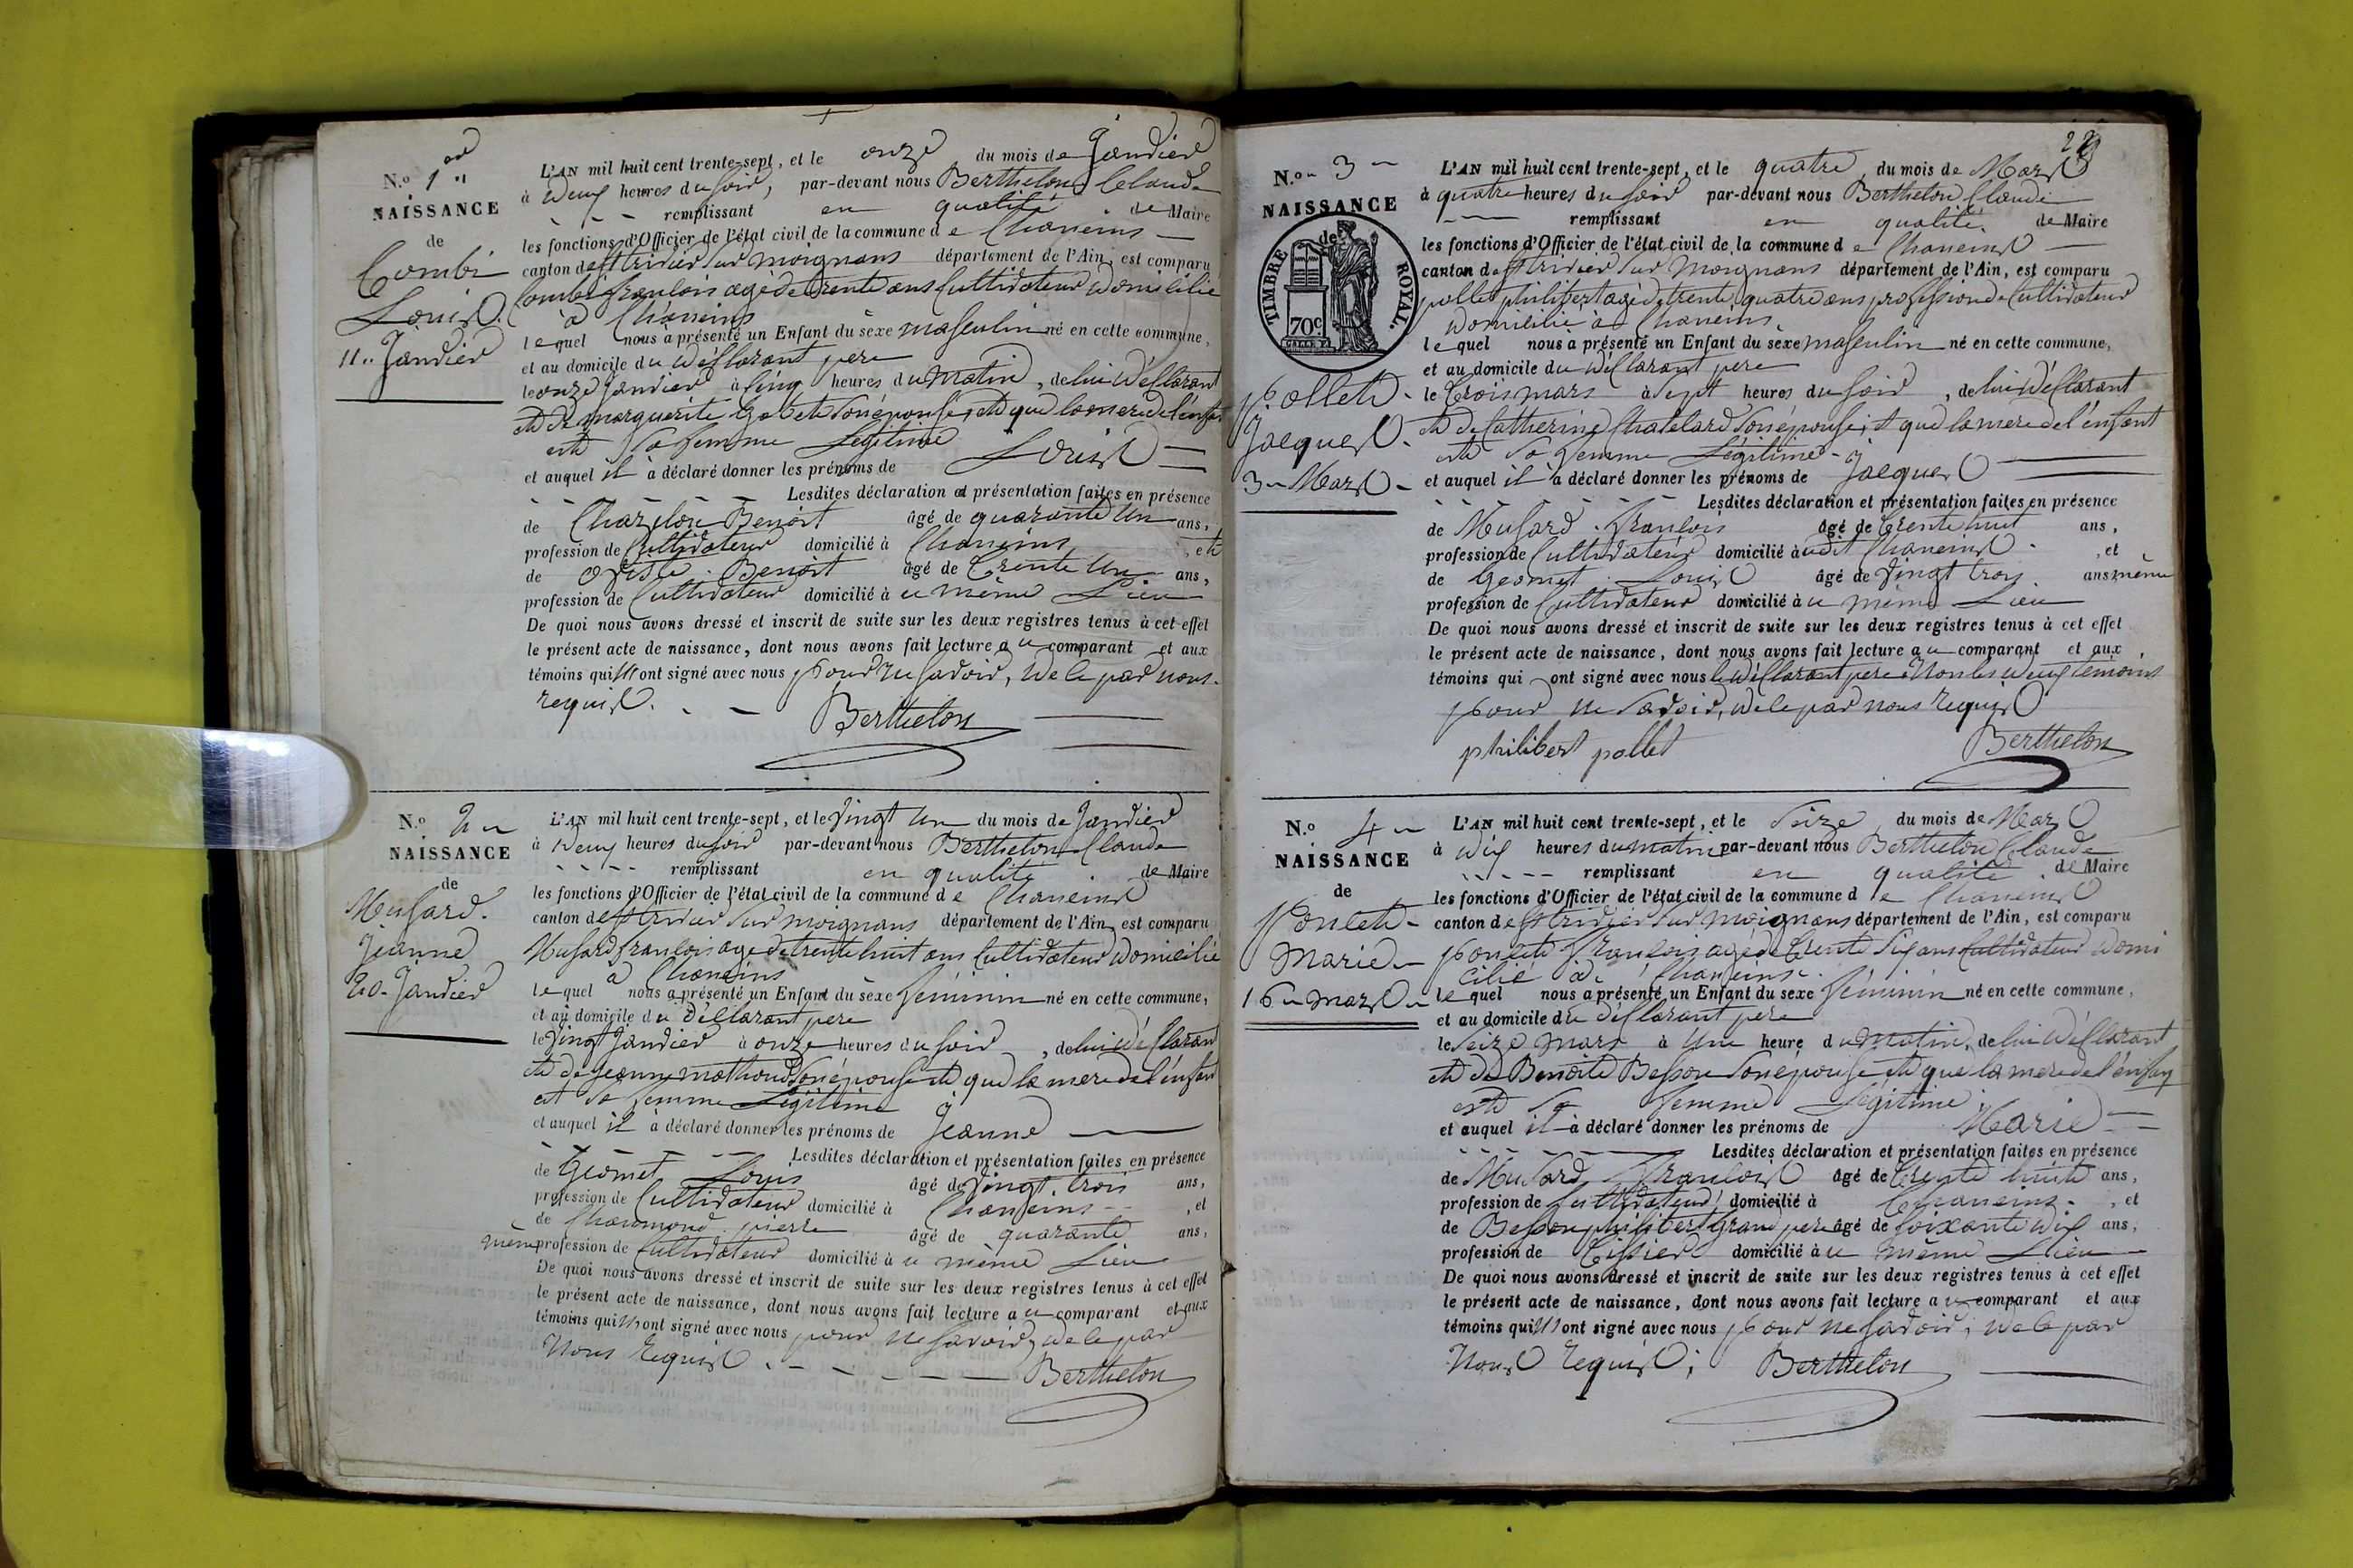 N.º 1er
NAISSANCE
de
Combi
Louis.
11.. Janvier
L'AN mil huit cent trente-sept, et le onze du mois de Janvier
à deux heures du soir, par-devant nous Berthelon Claude
remplissant en qualité de Maire
les fonctions d'Officier de l'état civil de la commune de Chaneins
canton de St trivier sur moignans département de l'Ain, est comparu
Combi françois agé de trente ans Cultivateur domicilié
à Chaneins
lequel nous a présenté un Enfant du sexe masculin né en cette commune,
et au domicile du déclarant pere
le onze Janvier à cinq heures du matin, de lui déclarant
et de marguerite son épouse, et que la mere de l'enfant
est sa femme Légitime
et auquel il a déclaré donner les prénoms de Louis
Lesdites déclaration et présentation faites en présence
de Chazelon Benoit âgé de quarante un ans,
profession de Cultivateur domicilié à Chaneins, et
de Benoit âgé de trente un ans,
profession de Cultivateur domicilié à u même Lieu
De quoi nous avons dressé et inscrit de suite sur les deux registres tenus à cet effet
le présent acte de naissance, dont nous avons fait lecture au comparant et aux
témoins qui n'ont signé avec nous pour ne savoir, de le par nous
requis.
Berthelon
N.º 2
NAISSANCE
de
Musard.
Jeanne
20. Janvier
L'AN mil huit cent trente-sept, et le vingt un du mois de Janvier
à deux heures du soir par-devant nous Berthelon Claude
remplissant en qualité de Maire
les fonctions d'Officier de l'état civil de la commune de Chaneins
canton de St trivier sur moignans département de l'Ain, est comparu
Musard françois agé de trente huit ans Cultivateur domicilié
à Chaneins
lequel nous a présenté un Enfant du sexe féminin né en cette commune,
et au domicile du déclarant pere
le vingt Janvier à onze heures du soir, de lui déclarant
et de jeanne mathoud son épouse et que la mere de l'enfant
est sa femme Légitime
et auquel il a déclaré donner les prénoms de Jeanne
Lesdites déclaration et présentation faites en présence
de Géomet Louis âgé de vingt trois ans,
profession de Cultivateur domicilié à Chaneins, et
de Charmond pierre âgé de quarante ans,
même profession de Cultivateur domicilié à u même Lieu
De quoi nous avons dressé et inscrit de suite sur les deux registres tenus à cet effet
le présent acte de naissance, dont nous avons fait lecture au comparant et aux
témoins qui n'ont signé avec nous pour ne savoir, de le par
Nous Requis.
Berthelon
22
N.º 3
NAISSANCE
de
TIMBRE ROYAL.
70c.
Pollet
Jacques.
3 Mars
L'AN mil huit cent trente-sept, et le quatre du mois de Mars
à quatre heures du soir par-devant nous Berthelon Claude
remplissant en qualité de Maire
les fonctions d'Officier de l'état civil de la commune de Chaneins
canton de St trivier sur Moignans département de l'Ain, est comparu
pollet philibert agé de trente quatre ans profession de Cultivateur
domicilié à Chaneins
lequel nous a présenté un Enfant du sexe masculin né en cette commune,
et au domicile du déclarant pere
le trois mars à sept heures du soir, de lui déclarant
et de Catherine Chatelard son épouse, et que la mere de l'enfant
est sa femme Légitime
et auquel il a déclaré donner les prénoms de Jacques
Lesdites déclaration et présentation faites en présence
de Musard françois âgé de trente huit ans,
profession de Cultivateur domicilié à udit Chaneins, et
de Geomet Louis âgé de vingt trois. ans, même
profession de Cultivateur domicilié à u même Lieu
De quoi nous avons dressé et inscrit de suite sur les deux registres tenus à cet effet
le présent acte de naissance, dont nous avons fait lecture au comparant et aux
témoins qui ont signé avec nous le déclarant pere Non les deux témoins
pour ne savoir, de le par nous requis
philibert pollet
Berthelon
N.º 4
NAISSANCE
de
Poncet
Marie
16 mars
L'AN mil huit cent trente-sept, et le seize du mois de Mars
à dix heures du matin par-devant nous Berthelon Claude
remplissant en qualité de Maire
les fonctions d'Officier de l'état civil de la commune de Chaneins
canton de St trivier sur moignans département de l'Ain, est comparu
poncet françois agé de trente six ans Cultivateur domi
cilié à Chaneins
lequel nous a présenté un Enfant du sexe féminin né en cette commune,
et au domicile du déclarant pere
le seize mars à Une heure du matin, de lui déclarant
et de Benoite Besson son épouse et que la mere de l'enfan
est sa femme Légitime
et auquel il a déclaré donner les prénoms de Marie
Lesdites déclaration et présentation faites en présence
de Musard françois âgé de trente huit ans,
profession de Cultivateur domicilié à Chaneins, et
de Besson philibert grand pere âgé de soixante dix ans,
profession de tissier domicilié à u même Lieu
De quoi nous avons dressé et inscrit de suite sur les deux registres tenus à cet effet
le présent acte de naissance, dont nous avons fait lecture au comparant et aux
témoins qui n'ont signé avec nous pour ne savoir, de le par
Nous requis;
Berthelon